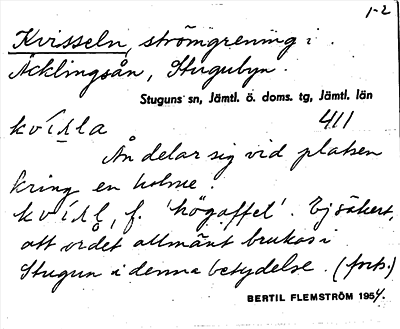 1-2
Kvisseln, strömgrening i
Äcklingsån, Stugubyn.
Stuguns sn, Jämtl. ö. doms. tg, Jämtl. län
411
kvísla
Ån delar sig vid platsen
kring en holme.
kvísl, f. 'högaffel'. Ej säkert,
att ordet allmänt brukas i
Stugun i denna betydelse. (forts.)
BERTIL FLEMSTRÖM 1954.